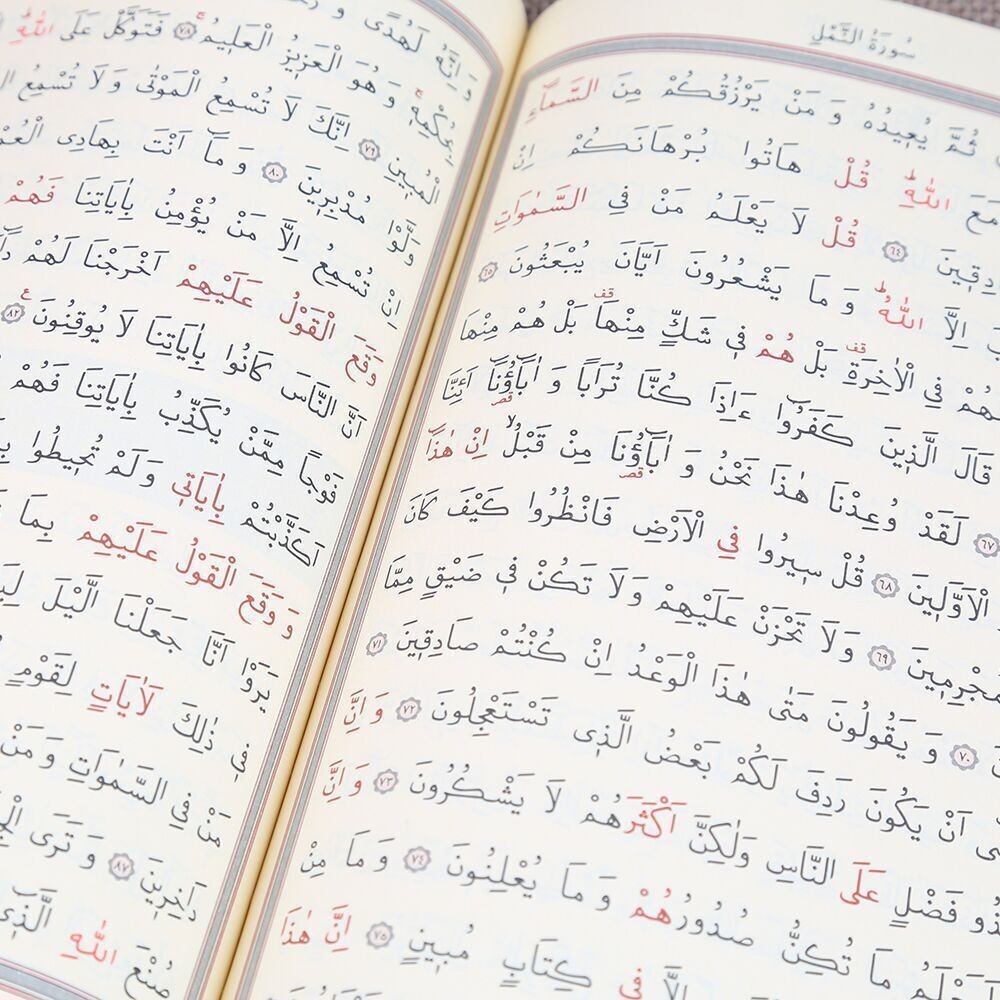 سُورَةُ النَّمْلِ
ثُمَّ يُعِيدُهُ وَ مَنْ يَرْزُقُكُمْ مِنَ السَّمَاءِ
مَعَ اللّٰهِ قُلْ هَاتُوا بُرْهَانَكُمْ اِنْ
دِقِينَ ٦٤ قُلْ لَا يَعْلَمُ مَنْ فِي السَّمٰوَاتِ
اِلَّا اللّٰهُ وَ مَا يَشْعُرُونَ اَيَّانَ يُبْعَثُونَ ٦٥
هُمْ فِي الْاٰخِرَةِ قف بَلْ هُمْ فِي شَكٍّ مِنْهَا قف بَلْ هُمْ مِنْهَا
قَالَ الَّذِينَ كَفَرُوا ءَاِذَا كُنَّا تُرَابًا وَ اٰبَاؤُنَا اَئِنَّا
٦٧ لَقَدْ وُعِدْنَا هٰذَا نَحْنُ وَ اٰبَاؤُنَا مِنْ قَبْلُ اِنْ هٰذَا
الْاَوَّلِينَ ٦٨ قُلْ سِيرُوا فِي الْاَرْضِ فَانْظُرُوا كَيْفَ كَانَ
جْرِمِينَ ٦٩ وَلَا تَحْزَنْ عَلَيْهِمْ وَلَا تَكُنْ فِي ضَيْقٍ مِمَّا
٧٠ وَ يَقُولُونَ مَتٰى هٰذَا الْوَعْدُ اِنْ كُنْتُمْ صَادِقِينَ ٧١
اَنْ يَكُونَ رَدِفَ لَكُمْ بَعْضُ الَّذِي تَسْتَعْجِلُونَ ٧٢ وَ اِنَّ
ذُو فَضْلٍ عَلَى النَّاسِ وَلٰكِنَّ اَكْثَرَهُمْ لَا يَشْكُرُونَ ٧٣ وَ اِنَّ
مَا تُكِنُّ صُدُورُهُمْ وَ مَا يُعْلِنُونَ ٧٤ وَ مَا مِنْ
اِلَّا فِي كِتَابٍ مُبِينٍ ٧٥ اِنَّ هٰذَا
وَ اِنَّهُ لَهُدًى وَ
بِحُكْمِهِ وَ هُوَ الْعَزِيزُ الْعَلِيمُ ٧٨ فَتَوَكَّلْ عَلَى اللّٰهِ
الْمُبِينِ ٧٩ اِنَّكَ لَا تُسْمِعُ الْمَوْتٰى وَ لَا تُسْمِعُ
وَلَّوْا مُدْبِرِينَ ٨٠ وَ مَا اَنْتَ بِهَادِي الْعُمْ
اِنْ تُسْمِعُ اِلَّا مَنْ يُؤْمِنُ بِاٰيَاتِنَا فَهُمْ
وَقَعَ الْقَوْلُ عَلَيْهِمْ اَخْرَجْنَا لَهُمْ
اَنَّ النَّاسَ كَانُوا بِاٰيَاتِنَا لَا يُوقِنُونَ ٨٢
فَوْجًا مِمَّنْ يُكَذِّبُ بِاٰيَاتِنَا فَهُمْ
اَكَذَّبْتُمْ بِاٰيَاتِي وَلَمْ تُحِيطُوا
وَ وَقَعَ الْقَوْلُ عَلَيْهِمْ بِمَا
يَرَوْا اَنَّا جَعَلْنَا الَّيْلَ
فِي ذٰلِكَ لَاٰيَاتٍ لِقَوْمٍ
مَنْ فِي السَّمٰوَاتِ وَ مَنْ
دَاخِرِينَ ٨٧ وَ تَرَى
صُنْعَ اللّٰهِ الَّذِي